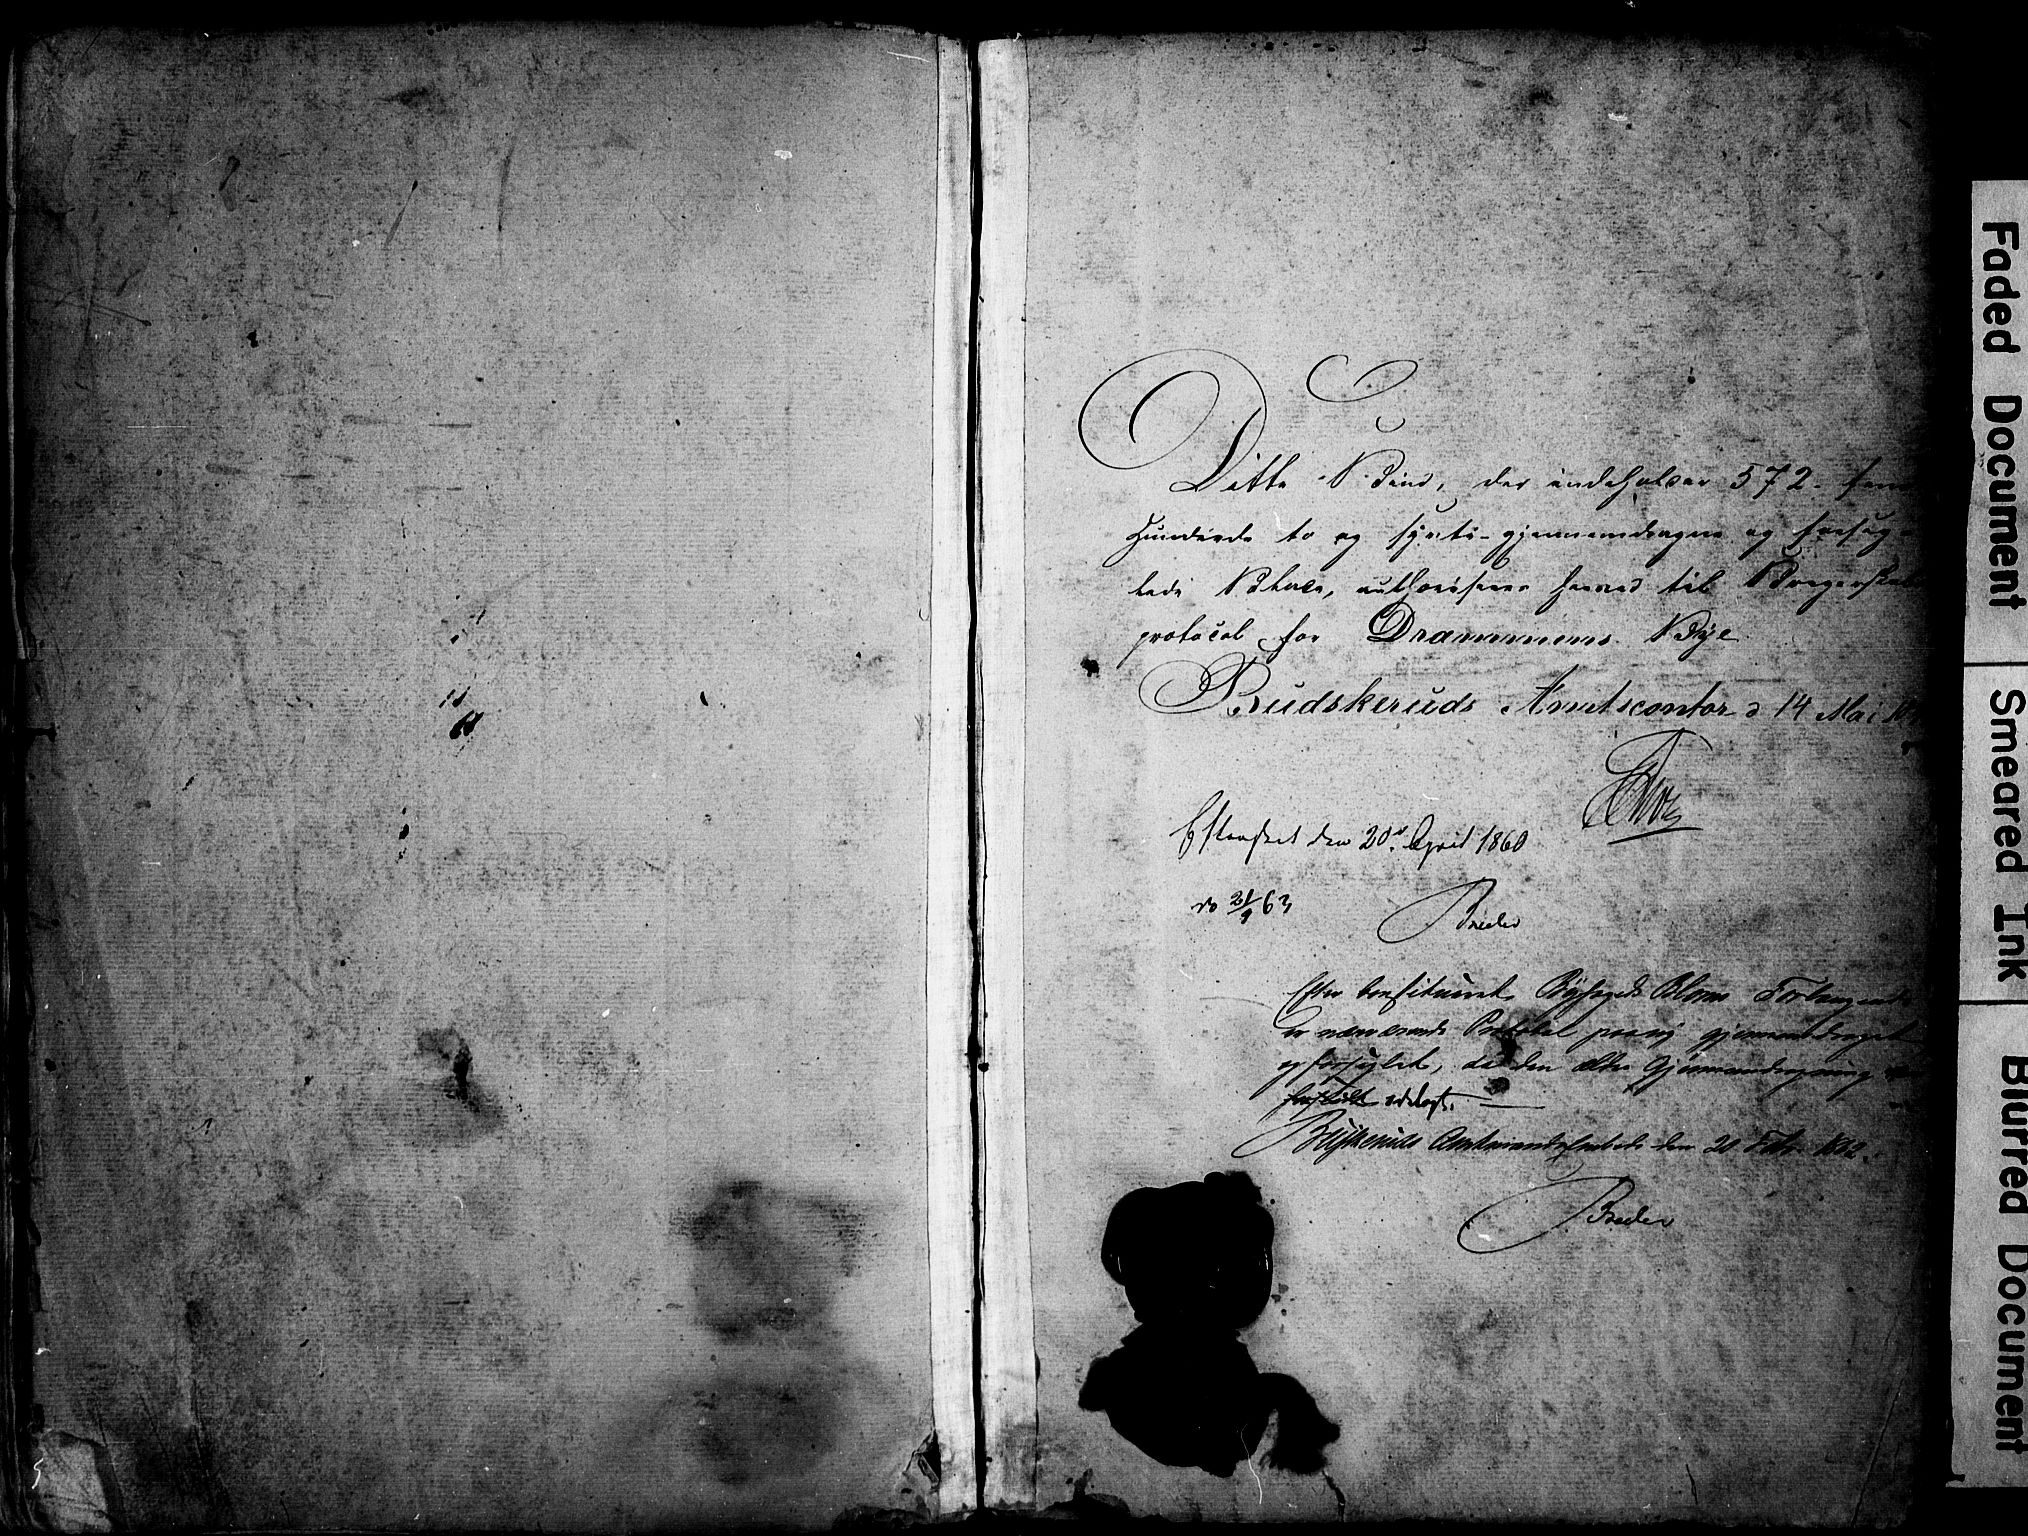 Dette Bind, der indeholder 572 - fem
Hundrede to og syvti - gjennemdragne og forseg-
lede Blade, authoriseres herved til Borgerskabs
protocol for Drammens Bye
Budskeruds Amtscontor d 14 Mai
Efterseet den 20de April 1860
Breder
do 21/9 63
Efter constitueret Byfogeds Bloms Forlangende
er nærværende Protokol paany gjennemdraget
og forseglet, da den ældre Gjennemdragning
ødelagt.
Buskeruds Amtmandsembede den 21 Febr. 1862.
Breder
Faded Document
Smeared Ink
Blurred Document